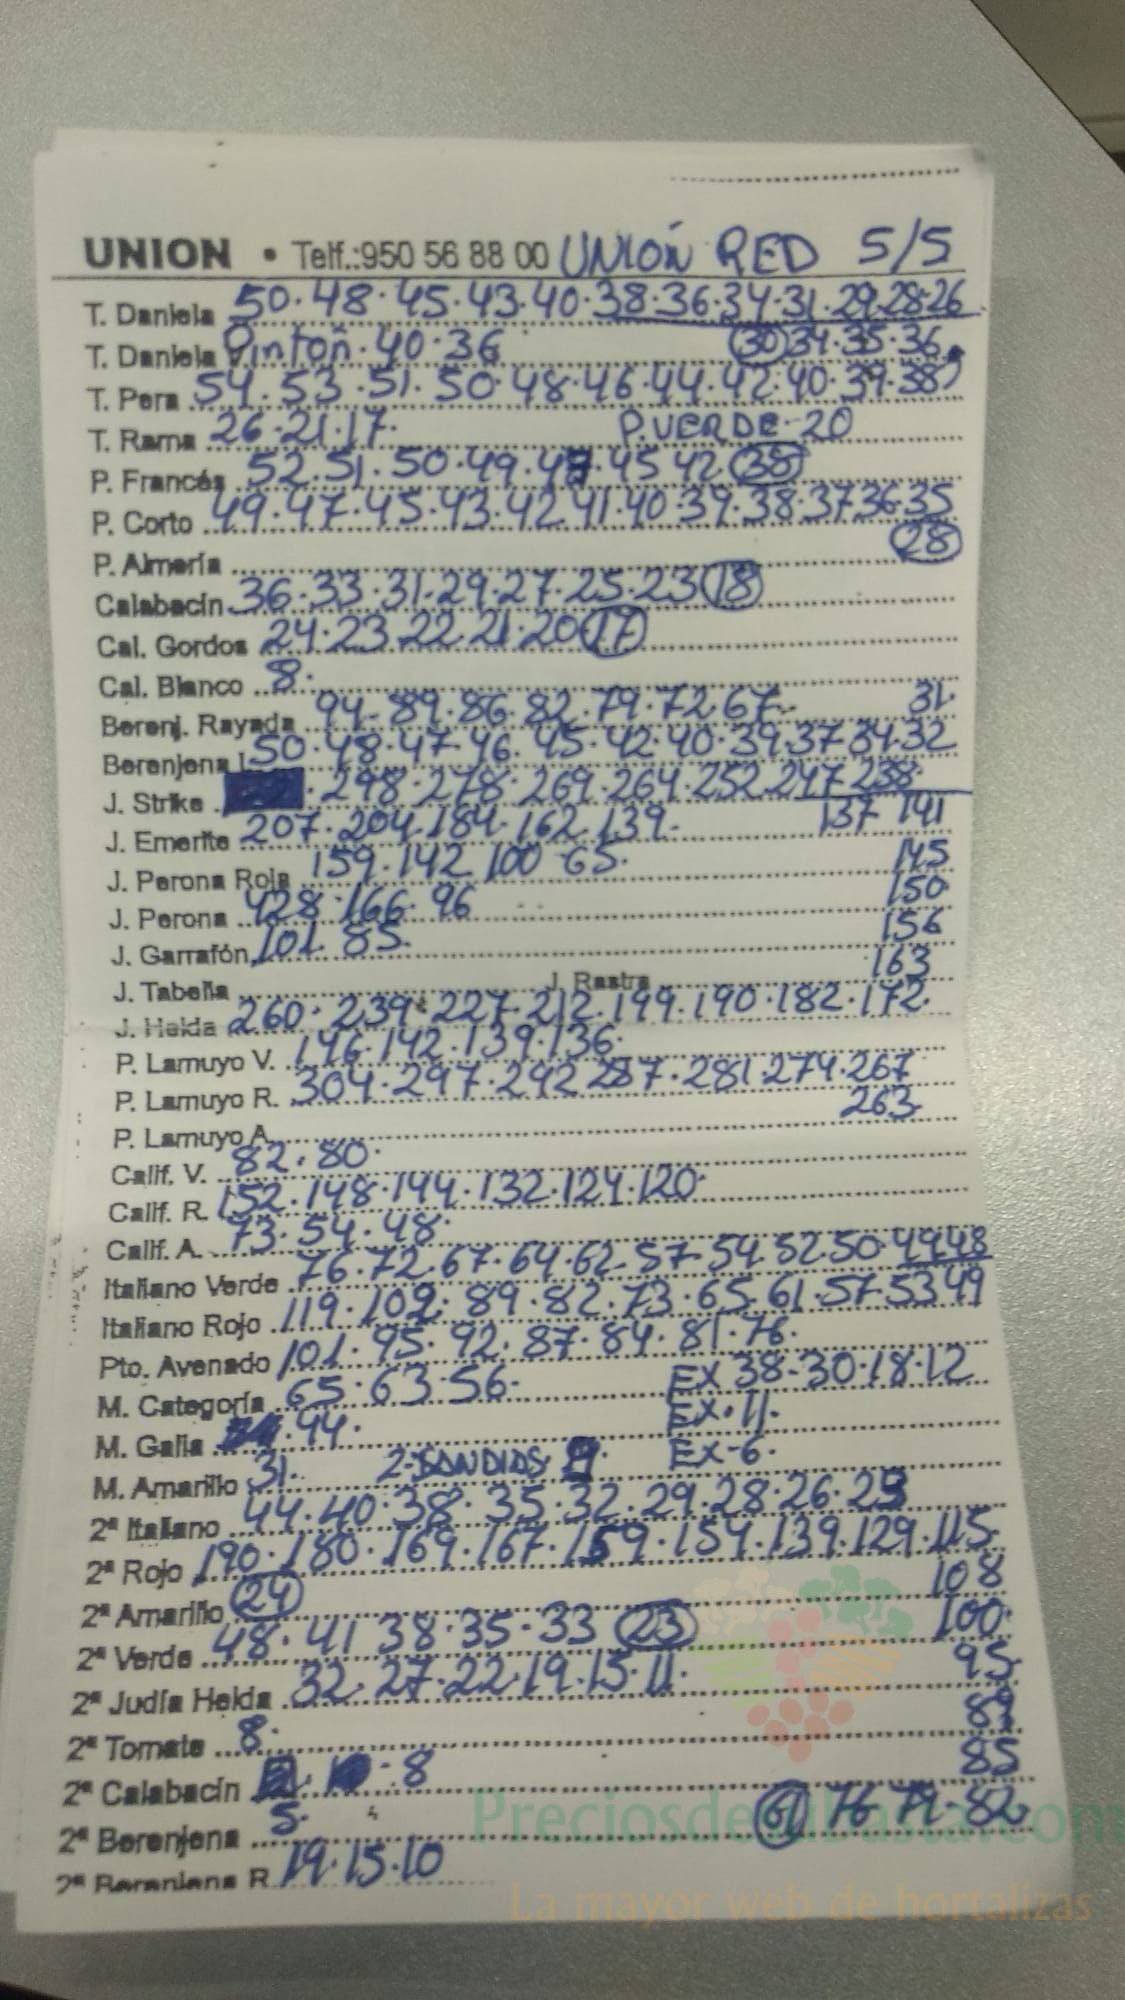 UNION • Telf.:950 56 88 00 UNIÓN RED 5/5
T. Daniela 50·48·45·43·40·38·36·34·31·29·28·26
T. Daniela Pinton·40·36 30 34·35·36
T. Pera 54·53·51·50·48·46·44·42·40·39·38
T. Rama 26·21·17· P.VERDE-20
P. Francés 52·51·50·49·47·45 42 38
P. Corto 49·47·45·43·42·41·40·39·38·37 36·35
P. Almería 28
Calabacín 36·33·31·29·27·25·23 18
Cal. Gordos 24·23·22·21·20 17
Cal. Blanco 8·
Berenj. Rayada 94·89·86·82·79·72·67- 31·
Berenjena L 50·48·47·46·45·42·40·39·37 34·32
J. Strike ·298·278·269·264·252·247 238
J. Emerite 207·204·184·162·139- 137 141
J. Perona Roja 159·142 100 65· 145
J. Perona 428·166·96 150
J. Garrafón 101·85· 156
J. Tabella J. Rastra 163
J. Helda 260·239·227·212·199·190·182·172·
P. Lamuyo V. 146·142·139·136·
P. Lamuyo R. 304·297·292 287·281·274·267
P. Lamuyo A. 263
Calif. V. 82·80·
Calif. R. 152·148·144·132·124·120·
Calif. A. 73·54·48·
Italiano Verde 76·72·67·64·62·57·54·52·50·49 48
Italiano Rojo 119·102·89·82·73·65·61·57·53 49
Pto. Avenado 101·95·92·87·84·81·76·
M. Categoría 65·63·56· EX 38-30·18·12
M. Galia ·44· EX·11·
M. Amarillo 31· 2·SANDIAS EX-6·
2ª Italiano 44·40·38·35·32·29·28·26·23
2ª Rojo 190·180·169·167·159·154·139·129·115·
2ª Amarillo 24 108
2ª Verde 48·41 38·35·33 23 100·
2ª Judía Helda 32·27·22·19·15·11· 95·
2ª Tomate 8· 89
2ª Calabacín ·8 85
2ª Berenjena 5· 61 76 79·82
2ª Berenjena R 19·15·10
Preciosdesubasta.com
La mayor web de hortalizas